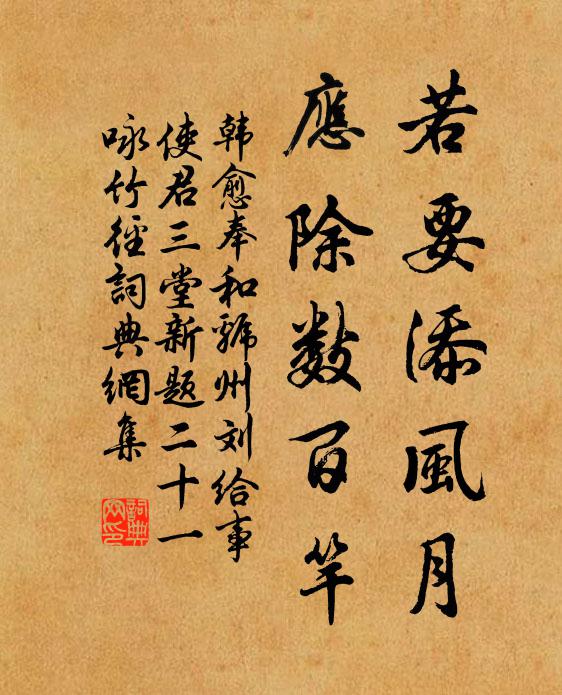 若要添風月
應除數百竿
韩愈奉和虢州刘给事
使君三堂新题二十一
咏竹徑詞典網集
詞典
网印